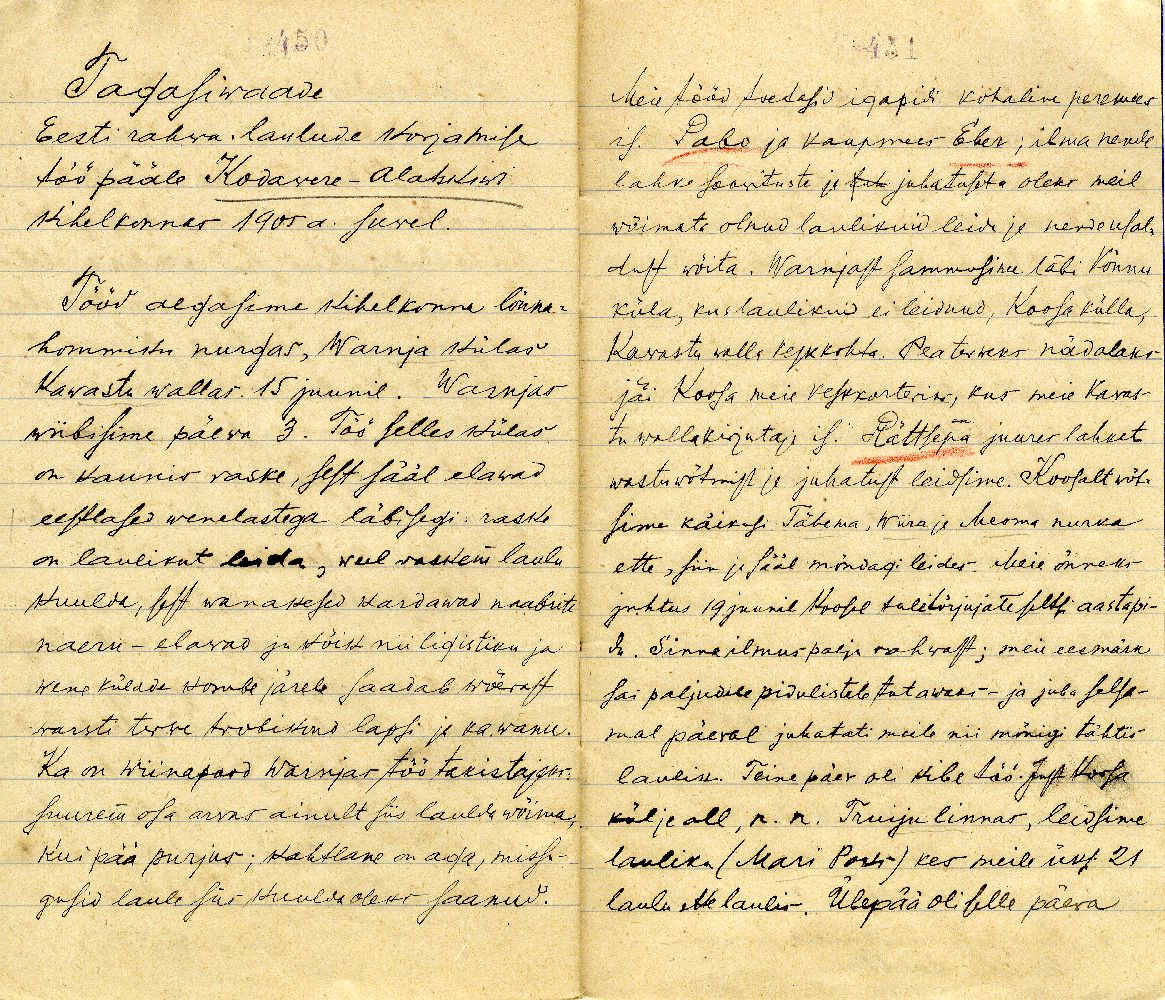 450
Tagasiwaade
Eesti rahwa-laulude korjamise
töö pääle Kodawere-Alatskiwi
kihelkonnas 1905 a. suwel.
Tööd algasime kihelkonna lõuna-
hommiku nurgas, Warnja külas
Kawastu wallas 15 juunil. Warnjas
wiibisime päewa 3. Töö selles külas
on kaunis raske, sest sääl elawad
eestlased wenelastega läbisegi: raske
on laulikut leida, weel raskem laulu
kuulda, sest wanakesed kardawad naabrite
naeru - elawad ju kõik nii ligistiku ja
wene külade kombe järele saadab wõerast
warsti terwe trobikond lapsi ja ka wanu.
Ka on wiinapood Warnjas töö takistajaks:
suurem osa arvas ainult siis laulda wõima,
kui pää purjus; kahtlane on aga, missu-
gusid laule siis kuulda oleks saanud.
431
Meie tööd toetasid igapidi kohaline peremees
is. Pabo ja kaupmees Eber; ilma nende
lahke soowituste ja juhatuseta oleks meil
wõimata olnud laulikuid leida ja nende usal-
dust wõita. Warnjast sammusime läbi Kõnnu
küla, kus laulikuid ei leidnud, Koosa külla,
Kawastu walla keskkohta. Pea terweks nädalaks
jäi Koosa meie keskkorteriks, kus meie Kawas-
tu wallakirjutaja is. Rättsepa juures lahket
wastuwõtmist ja juhatust leidsime. Koosalt wõt-
sime käikusi Tähema, Wiira ja Meoma nurka
ette, siin ja sääl mõndagi leides. Meie õnneks
juhtus 19 juunil Koosal tuletõrjujate seltsi aastapi-
du. Sinna ilmus palju rahwast; meie eesmärk
sai paljudele pidulistele tutawaks - ja juba selsa-
mal päewal juhatati meile nii mõnigi tähtis
laulik. Teine päew oli kibe töö. Just Koosa
külje all, n. n. Truiju linnas, leidsime
lauliku (Mari Poks) kes meile üksi 21
laulu ette laulis. Ülepää oli selle päewa